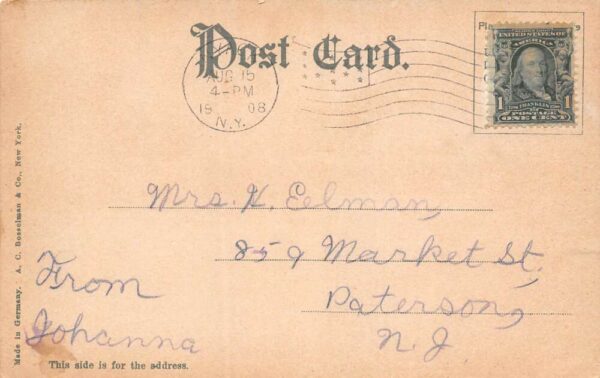 Post Card.
AUG 15
4-PM
1908
N.Y.
UNITED STATES OF
AMERICA
FRANKLIN
1 1
POSTAGE
ONE CENT
Mrs. K. Eelman,
859 Market St,
Paterson,
N. J.
From
Johanna
This side is for the address.
Made in Germany. A. C. Bosselman & Co., New York.